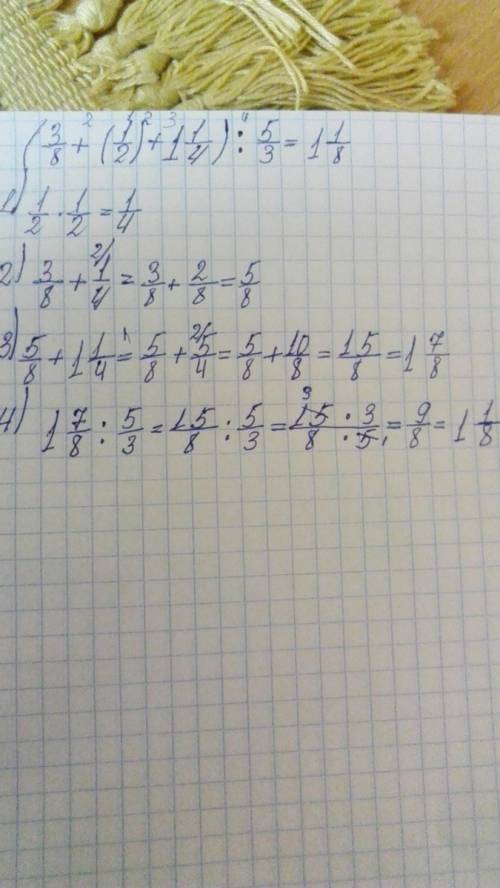 (3/8 + (1/2)² + 1 1/4) : 5/3 = 1 1/8
1) 1/2 · 1/2 = 1/4
2) 3/8 + 1/4 = 3/8 + 2/8 = 5/8
3) 5/8 + 1 1/4 = 5/8 + 5/4 = 5/8 + 10/8 = 15/8 = 1 7/8
4) 1 7/8 : 5/3 = 15/8 : 5/3 = 15 · 3/8 · 5 = 9/8 = 1 1/8